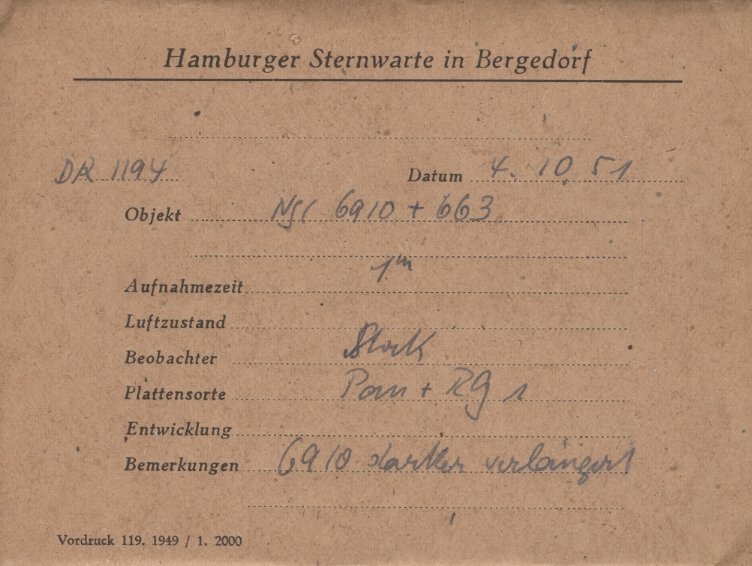 Hamburger Sternwarte in Bergedorf
DR 1194 Datum 4. 10. 51
Objekt NGC 6910 + 663
Aufnahmezeit 1m
Luftzustand
Beobachter Stock
Plattensorte Pan + RG 1
Entwicklung
Bemerkungen 6910 verlängert
Vordruck 119. 1949 / 1. 2000